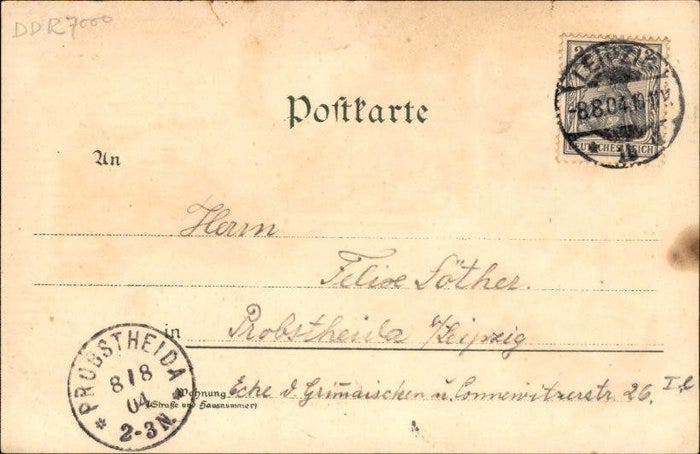 DDR 7000
LEIPZIG
8.8.04.
DEUTSCHES REICH
Postkarte
An
Herrn
Felix Löther.
in Probstheida b/Leipzig
PROBSTHEIDA
8/8
04
2-3N.
Wohnung Ecke d. Grimaischen u. Connewitzerstr. 26. I,l
(Straße und Hausnummer)